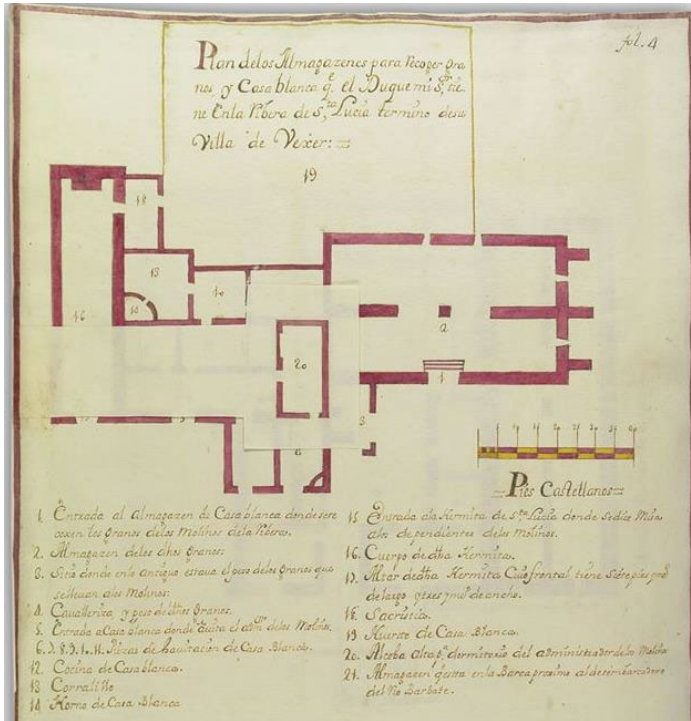 fol. 4
Plan delos Almagazenes para recoger Gra
nos y Casablanca q.e el Duque mi S.r tie
ne En la Ribera de S.ta Lucia termino de su
Villa de Vexer:=
19
18
13
16
14
10
20
2
1
3
6
=Pies Castellanos=
1. Entrada al Almagazen de Casablanca donde se re
coxen los Granos delos Molinos dela Ribera.
2. Almagazen delos dhos Granos:
3. Sitio donde en lo antiguo estava el peso delos Granos que
se llevan alos Molinos:
4. Cavalleriza, y peso de dhos Granos.
5. Entrada a Casablanca donde avita el adm.or delos Molinos.
6. 7. 8. 9. 1. 11. Piezas de havitacion de Casa Blanca.
12. Cocina de Casablanca.
13 Corralillo
14 Horno de Casa Blanca
15 Entrada ala Hermita de S.ta Lucia donde se dize Misa
alos dependientes delos Molinos.
16. Cuerpo de dha Hermita.
17. Altar de dha Hermita Cuio frontal tiene Siete pies
de largo y tres de ancho.
18. Sacristia.
19 Huerto de Casa Blanca.
20. Alcoba alta p.a dormitorio del administrador delos Molinos
21. Almagazen q.e esta en la Barca proximo al desembarcadero
del Rio Barbate.